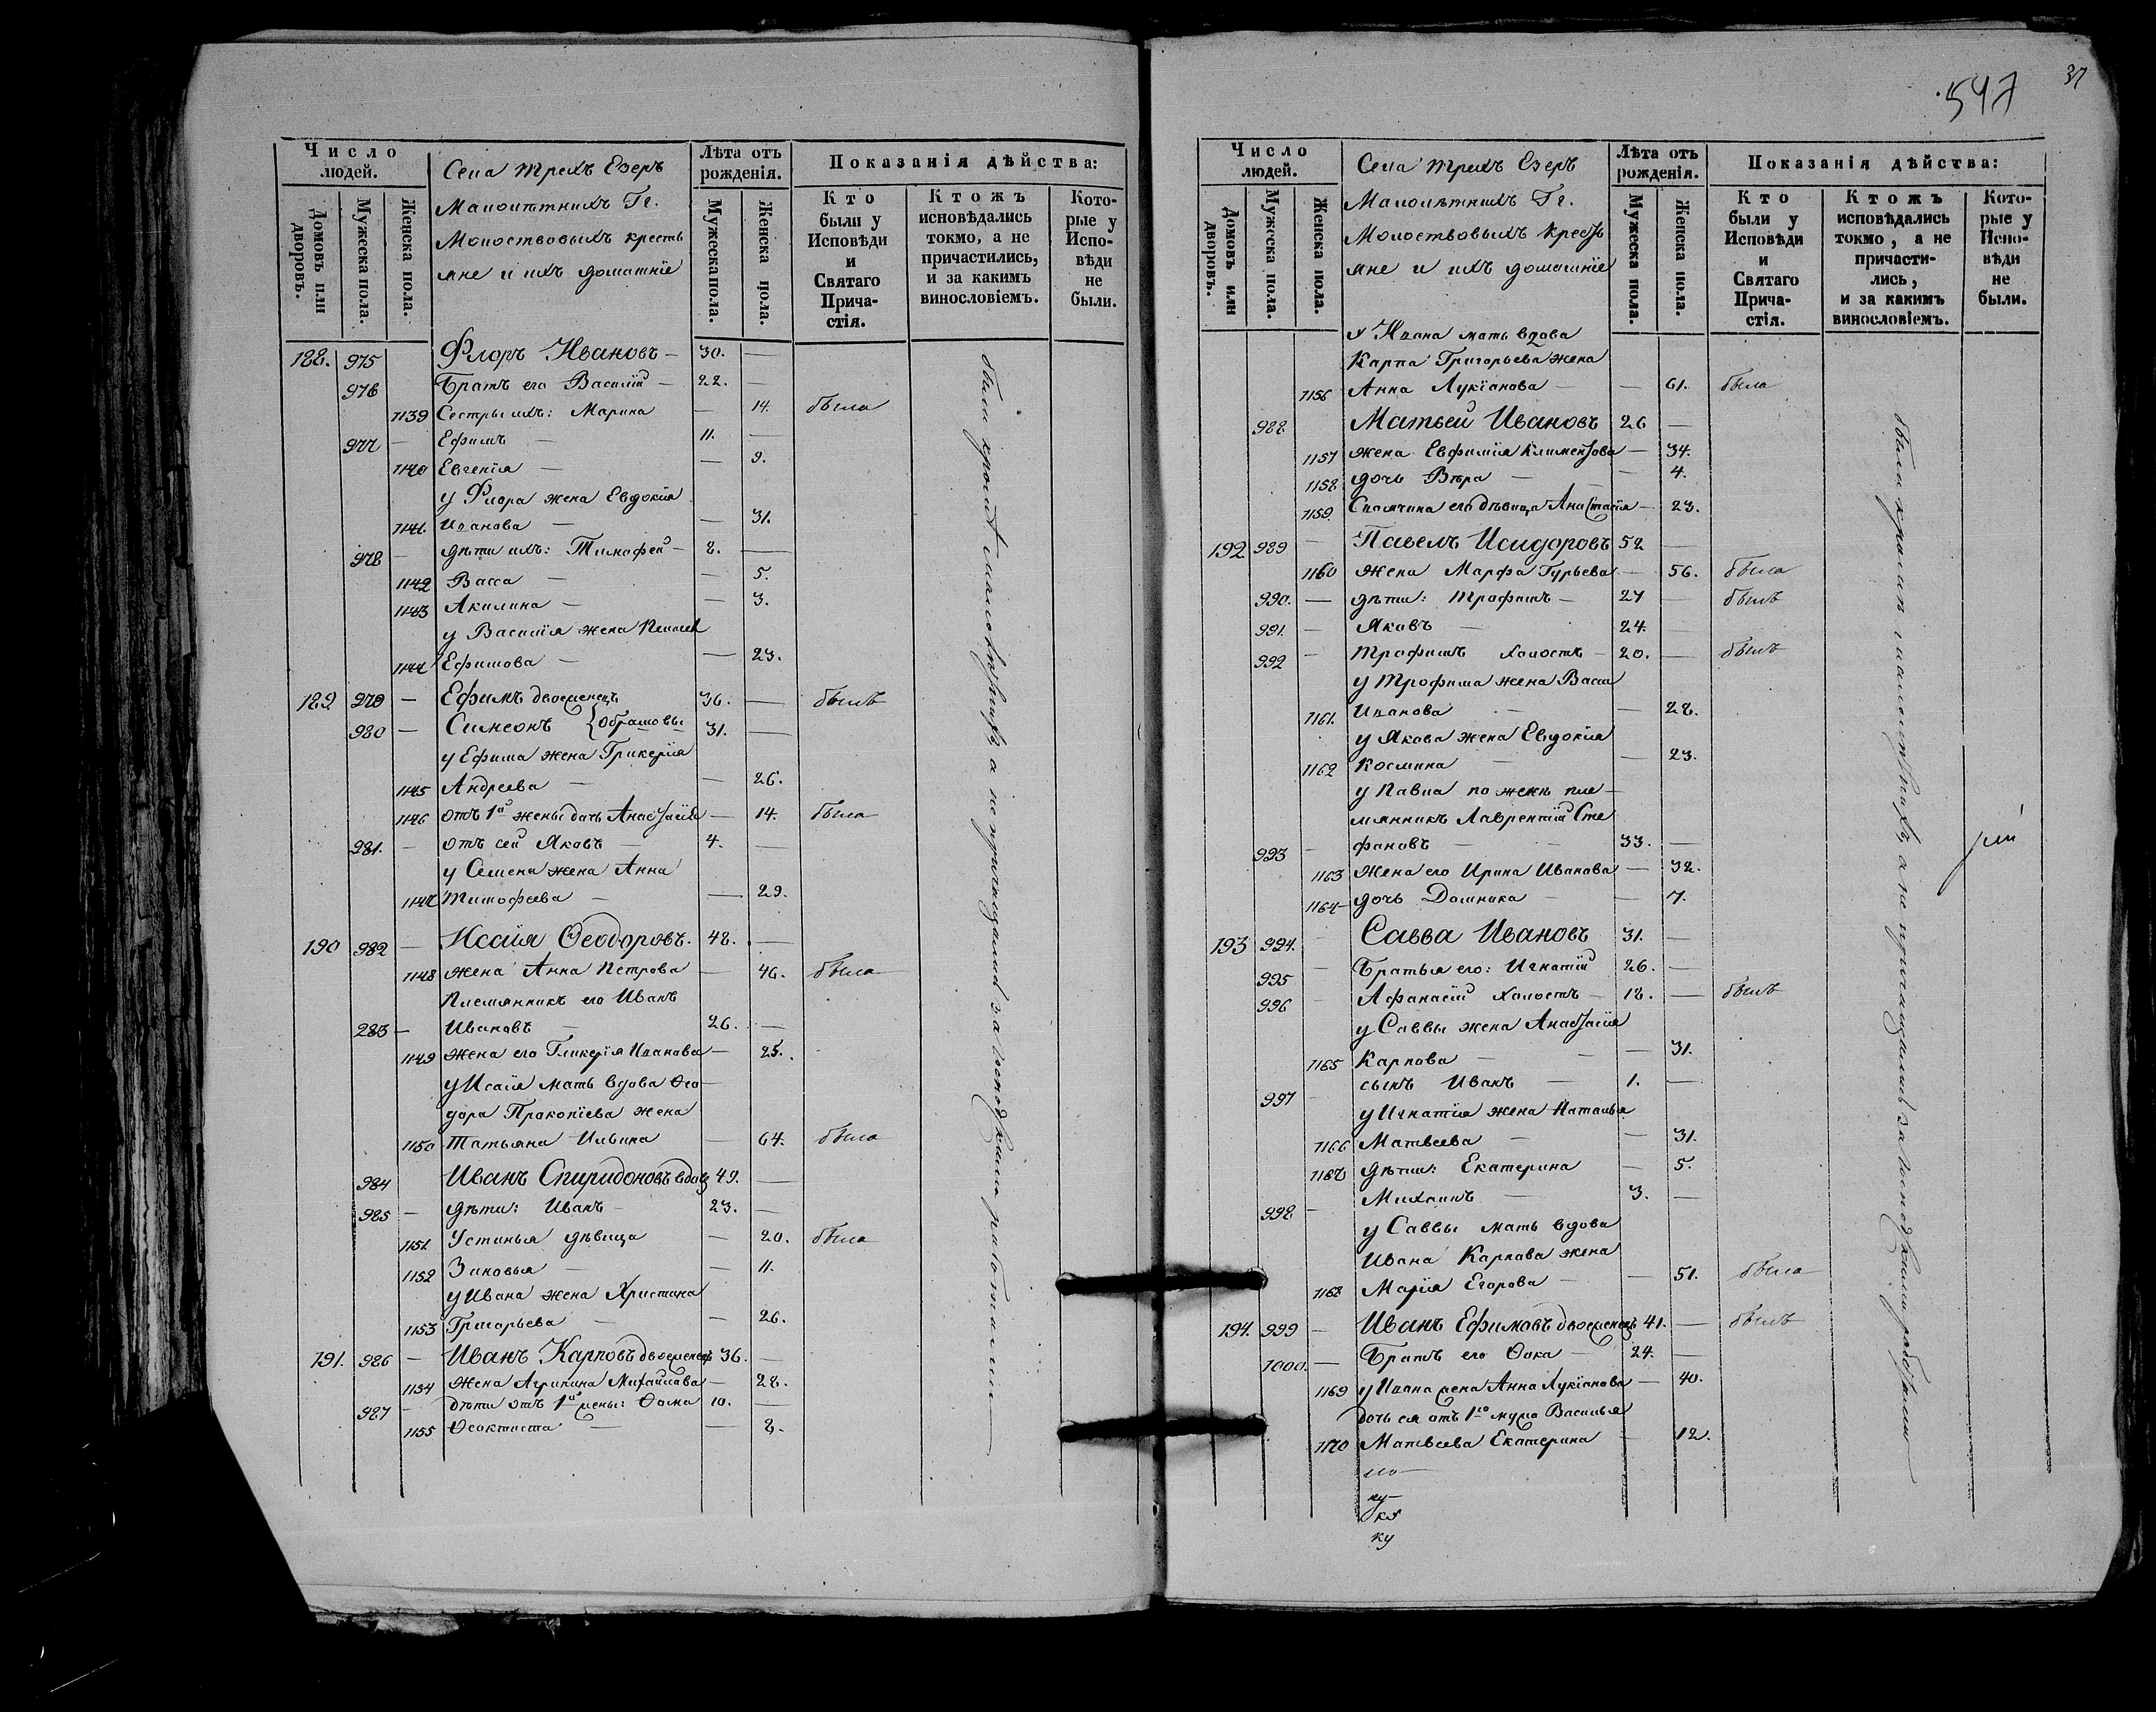 547
37
Число людей.
Домовъ или дворовъ.
Мужеска пола.
Женска пола.
Села трехъ Езеръ
Малолѣтнихъ Гг.
Молоствовыхъ кресть
яне и ихъ домашніе
Лѣта отъ рожденія.
Мужеска пола.
Женска пола.
Показанія дѣйства:
Кто были у Исповѣди и Святаго Прича-стія.
Ктожъ исповѣдались токмо, а не причастились, и за какимъ винословіемъ.
Кото-рые у Испо-вѣди не были.
188. 975 Флоръ Ивановъ — 30. —
976 Братъ его Василій — 22. —
1139 Сестры ихъ: Марина — 14. была
977 — Ефимъ — 11. —
1140 Евгенія — — 9.
у Флора жена Евдокія
1141. Иванова — — 31.
978 — дѣти ихъ: Тимофей — 8. —
1142 Васса — — 5.
1143 Акилина — — 3.
у Василія жена
1144 Ефимова — — 23.
189. 979 — Ефимъ двоеженецъ 36. — былъ
980 — Симеонъ Абрамовы 31. —
у Ефима жена Гликерія
1145 Андреева — — 26.
1146 отъ 1й жены дочь Анастасія — 14. была
981. — отъ сей Яковъ — 4. —
у Семена жена Анна
1147 Тимофеева — — 29.
190 982 — Исаія Ѳеодоровъ. 48. —
1148 жена Анна Петрова — 46. была
Племянникъ его Иванъ
983 — Ивановъ — 26. —
1149 жена его Гликерія Иванова — 25.
у Исаія мать вдова Ѳео—
дора Прокопіева жена
1150 Татьяна Ильина — 64. была
984 Иванъ Спиридоновъ вдовъ 49. —
985 — дѣти: Иванъ — 23. —
1151 Устинья дѣвица — 20. была
1152 Зиновья — — 11.
у Ивана жена Христина
1153 Григорьева — — 26.
191. 986 — Иванъ Карповъ двоеженецъ 36. —
1154 жена Агрипина Михайлова — 28.
987 — дѣти отъ 1й жены: Ѳома 10. —
1155 Ѳеоктиста — — 8.
были кромѣ малолѣтнихъ а не причащались за господскими работами
Число людей.
Домовъ или дворовъ.
Мужеска пола.
Женска пола.
Села трехъ Езеръ
Малолѣтнихъ Гг.
Молоствовыхъ кресть
яне и ихъ домашніе
Лѣта отъ рожденія.
Мужеска пола.
Женска пола.
Показанія дѣйства:
Кто были у Исповѣди и Святаго Прича-стія.
Ктожъ исповѣдались токмо, а не причасти-лись, и за какимъ винословіемъ.
Кото-рые у Испо-вѣди не были.
у Ивана мать вдова
Карпа Григорьева жена
1156 Анна Лукіанова — — 61. была
988 Матвей Ивановъ 26 —
1157 жена Евфимія Климентова — 34.
1158 дочь Вѣра — — 4.
1159. его дѣвица Анастасія — 23.
192 989 — Павелъ Исидоровъ 52 —
1160 жена Марфа Гурьева — 56. была
990. — дѣти: Трофимъ — 27 — былъ
991. — Яковъ — 24. —
992 — Трофимъ холостъ — 20. — былъ
у Трофима жена Васса
1161. Иванова — — 28.
у Якова жена Евдокія
1162 Космина — — 23.
у Павла по женѣ пле—
мянникъ Лаврентій Сте
993 — фановъ — 33. —
1163 жена его Ирина Иванова — 32.
1164 — дочь Домника — — 7.
193 994. — Савва Ивановъ 31. —
995 — Братья его: Игнатій 26. —
996 — Афанасій холостъ — 18. — былъ
у Саввы жена Анастасія
1165 Карпова — — 31.
997 — сынъ Иванъ — 1. —
у Игнатія жена Наталья
1166 Матвеева — — 31.
1167 дѣти: Екатерина — 5.
998 — Михаилъ — 3. —
у Саввы мать вдова
Ивана Карпова жена
1168 Марія Егорова — — 51. была
194. 999 — Иванъ Ефимовъ двоеженецъ 41. — былъ
1000. — Братъ его Ѳока — 24. —
1169 у Ивана жена Анна Лукіанова — 40.
дочь ея отъ 1го мужа Василья
1170 Матвеева Екатерина — 12.
ку
были кромѣ малолѣтнихъ а не причащались за господскими работами